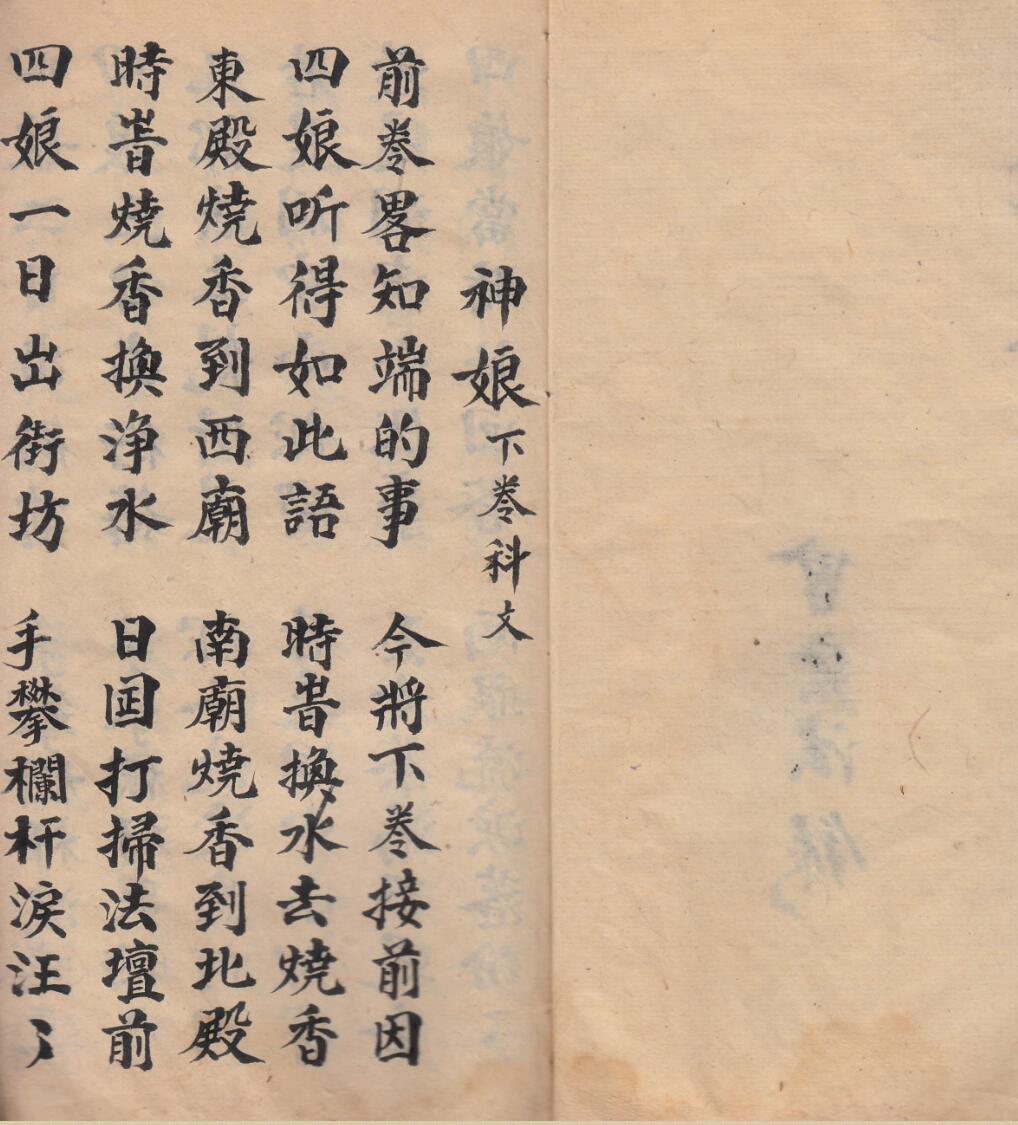 神娘下卷科文
前卷畧知端的事　今將下卷接前因
四娘听得如此語　時旹換水去燒香
東殿燒香到西廟　南廟燒香到北殿
時旹燒香換淨水　日囯打掃法壇前
四娘一日出街坊　手攀欄杆淚汪〻